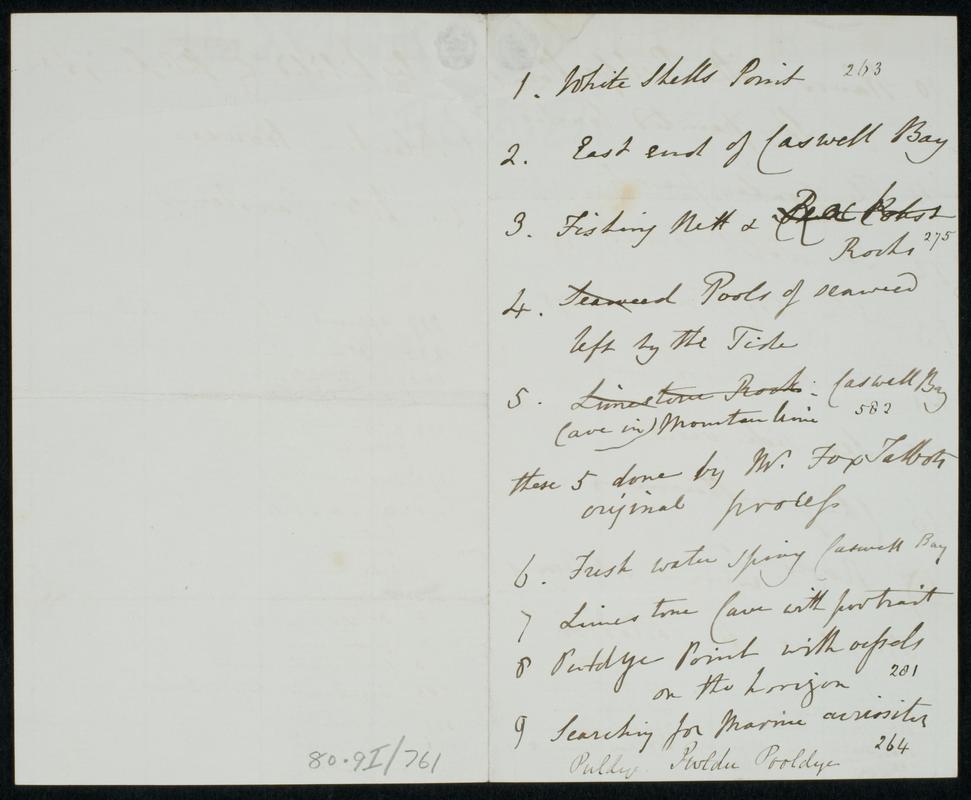 1. White Shells Point 263
2. East end of Caswell Bay
3. Fishing Nett &
Rocks 275
4. Seaweed Pools of seaweed
left by the Tide
5. Limestone Rock: Caswell Bay
(Cave in) Mountain lime 582
these 5 done by Mr. Fox Talbots
original process
6. Fresh water spring Caswell Bay
7 Limestone Cave with portrait
8 Pwldye Point with vessels
on the horizon 281
9 Searching for Marine curiosities
264
Puldye Pwldu Pooldye
80.9I/761